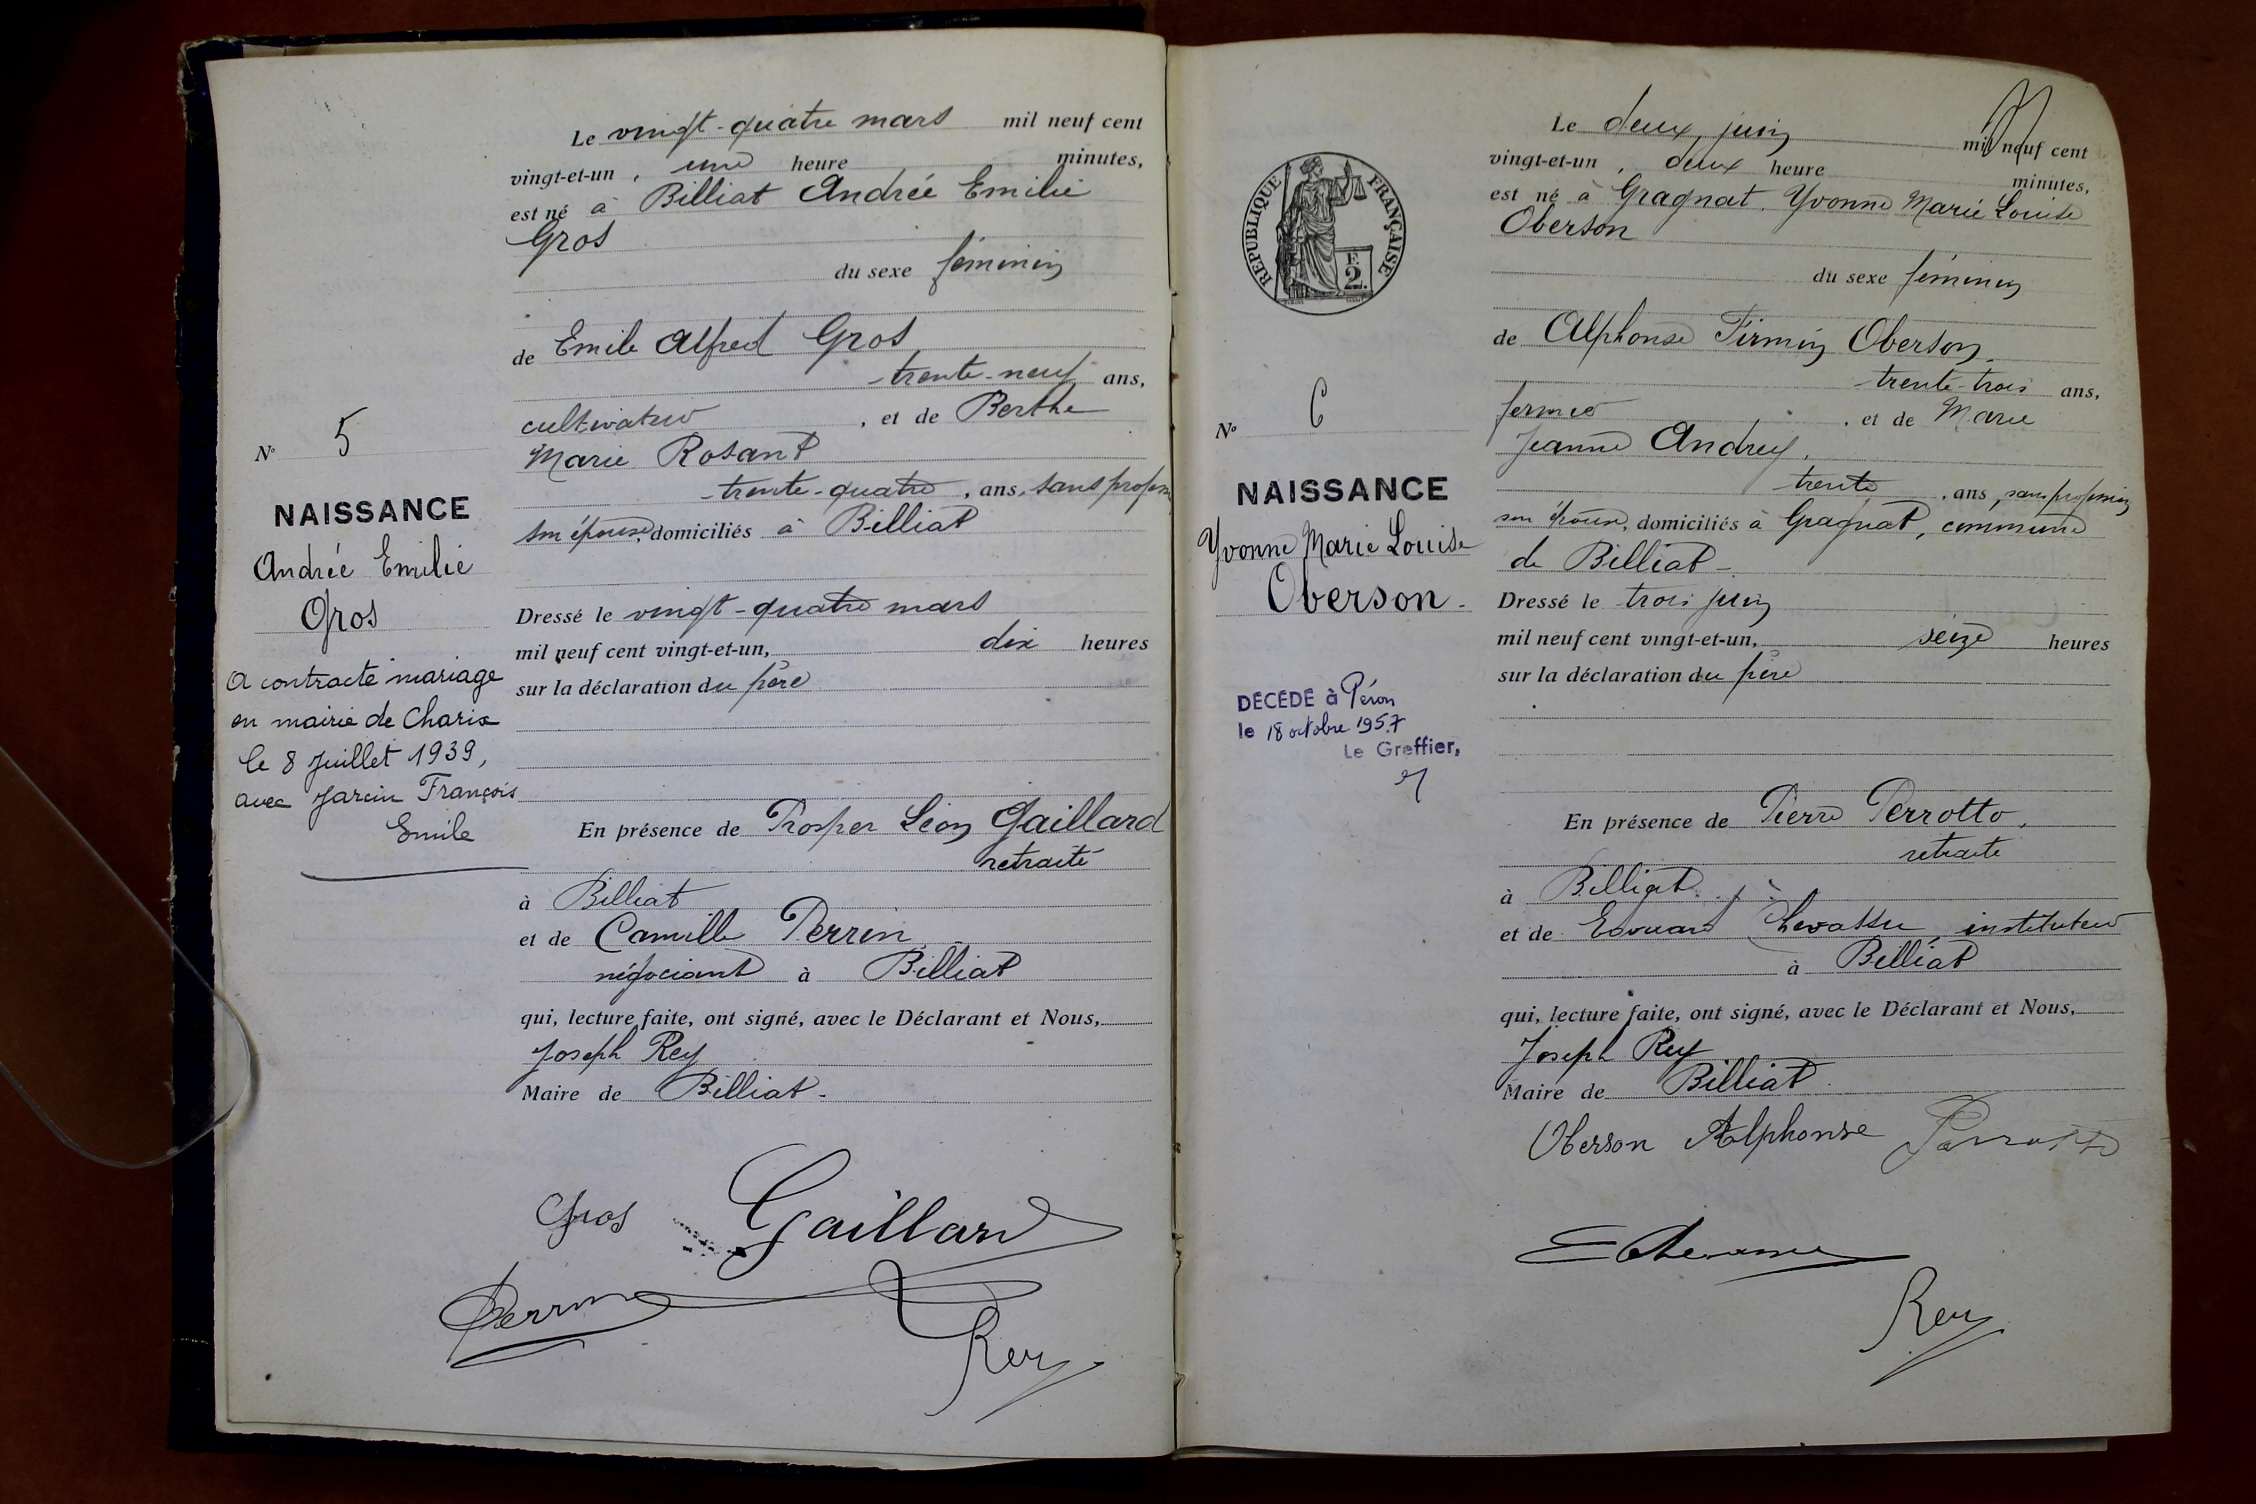 Le vingt-quatre mars mil neuf cent
vingt-et-un, une heure minutes,
est né à Billiat Andrée Emilie
Gros
du sexe féminin
de Emile Alfred Gros
trente-neuf ans,
cultivateur, et de Berthe
Marie Rosant
trente-quatre, ans, sans profession
son épouse, domiciliés à Billiat
N° 5
NAISSANCE
Andrée Emilie
Gros
A contracté mariage
en mairie de Charix
le 8 Juillet 1939,
avec Jarcin François
Emile
Dressé le vingt-quatre mars
mil neuf cent vingt-et-un, dix heures
sur la déclaration du père
En présence de Prosper Léon Gaillard
retraité
à Billiat
et de Camille Perrin
négociant à Billiat
qui, lecture faite, ont signé, avec le Déclarant et Nous,
Joseph Rey
Maire de Billiat.
Gros Gaillard
Perrin
Rey
REPUBLIQUE FRANÇAISE
F.
2.
N° 6
NAISSANCE
Yvonne Marie Louise
Oberson.
DÉCÉDÉ à Péron
le 18 octobre 1957
Le Greffier,
Le deux juin mil neuf cent
vingt-et-un, deux heure minutes,
est né à Gragnat, Yvonne Marie Louise
Oberson
du sexe féminin
de Alphonse Firmin Oberson
trente-trois ans,
fermier, et de Marie
Jeanne Andrey,
trente, ans, sans profession
son épouse, domiciliés à Gragnat, commune
de Billiat
Dressé le trois juin
mil neuf cent vingt-et-un, seize heures
sur la déclaration du père
En présence de Pierre Perrotto,
retraité
à Billiat
et de Edouard Chevassu instituteur
à Billiat
qui, lecture faite, ont signé, avec le Déclarant et Nous,
Joseph Rey
Maire de Billiat
Oberson Alphonse Perrotto
E Chevassu
Rey